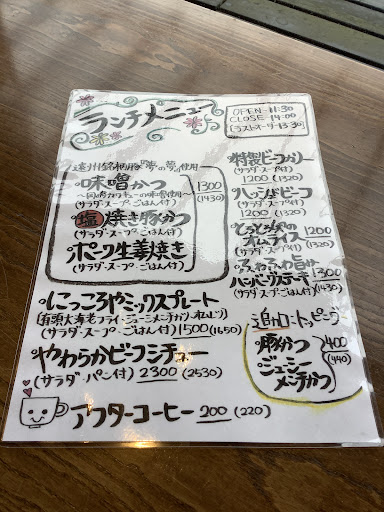 ランチメニュー
OPEN 11:30
CLOSE 14:00
(ラストオーダー13:30)
遠州銘柄豚『夢の夢』使用
・味噌かつ
(サラダ・スープ・ごはん付)
・塩焼き豚かつ
(サラダ・スープ・ごはん付)
・ポーク生姜焼き
(サラダ・スープ・ごはん付)
1300
(1430)
・にこころやミックスプレート
(有頭大海老フライ・ジューシーメンチカツ・オムレツ)
(サラダ・スープ・ごはん付) 1500 (1650)
・やわらかビーフシチュー
(サラダ・パン付) 2300 (2530)
アフターコーヒー 200 (220)
・特製ビーフカリー
(サラダ・スープ付)
1200 (1320)
・ハッシュドビーフ
(サラダ・スープ付)
1200 (1320)
・とろとろ卵の
オムライス 1200
(サラダ・スープ付) (1320)
・ふわふわ旨い
ハンバーグステーキ 1300
(サラダ・スープ・ごはん付) (1430)
追加トッピング
・豚かつ
・ジューシー
メンチかつ
400
(440)